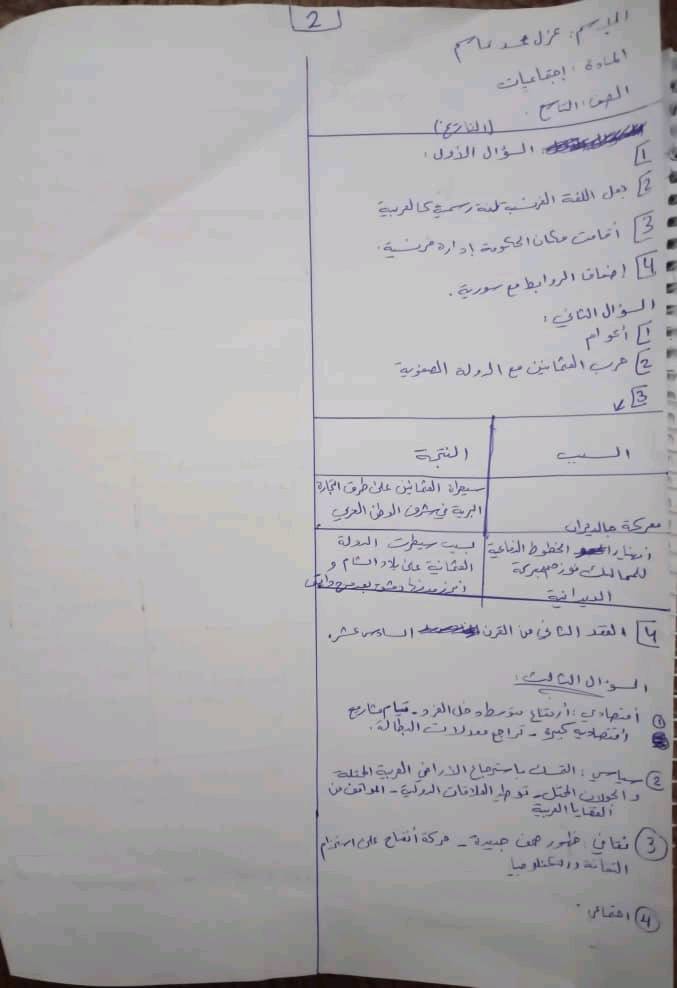 2
الاسم: غزل محمد عاصم
المادة: إجتماعيات
الصف: التاسع.
(التاريخ)
السؤال الأول:
1
2 جعل اللغة الفرنسية لغة رسمية كالعربية
3 أقامت مكان الحكومة إدارة فرنسية.
4 إضعاف الروابط مع سورية.
السؤال الثاني:
1 أعوام
2 حرب العثمانين مع الدولة الصفوية
3
السبب النتجة
معركة جالديران سيطرة العثمانين على طرق التجارة
البرية في شرق الوطن العربي
انهيار الخطوط الدفاعية بسبب سيطرت الدولة
للمماليك العثمانية على بلاد الشام و
الديرانية دمشق
4 العقد الثاني من القرن السادس عشر.
السؤال الثالث:
1 أقتصادي: أرتفاع متوسط دخل الفرد - قيام مشاريع
أقتصادية كبيرة - تراجع معدلات البطالة.
2 سياسي: التمسك باسترجاع الأراضي العربية المحتلة
و الجولان المحتل - العلاقات الدولية - المواقف من
القضايا العربية
3 ثقافي: ظهور صحف جديدة - حركة أنفتاح على استخدام
التقانة والتكنلوجيا
4 اجتماعي